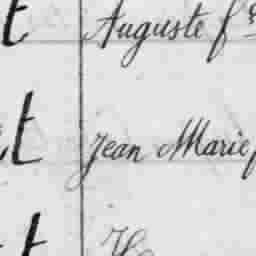 t Auguste fs
t Jean Marie
t